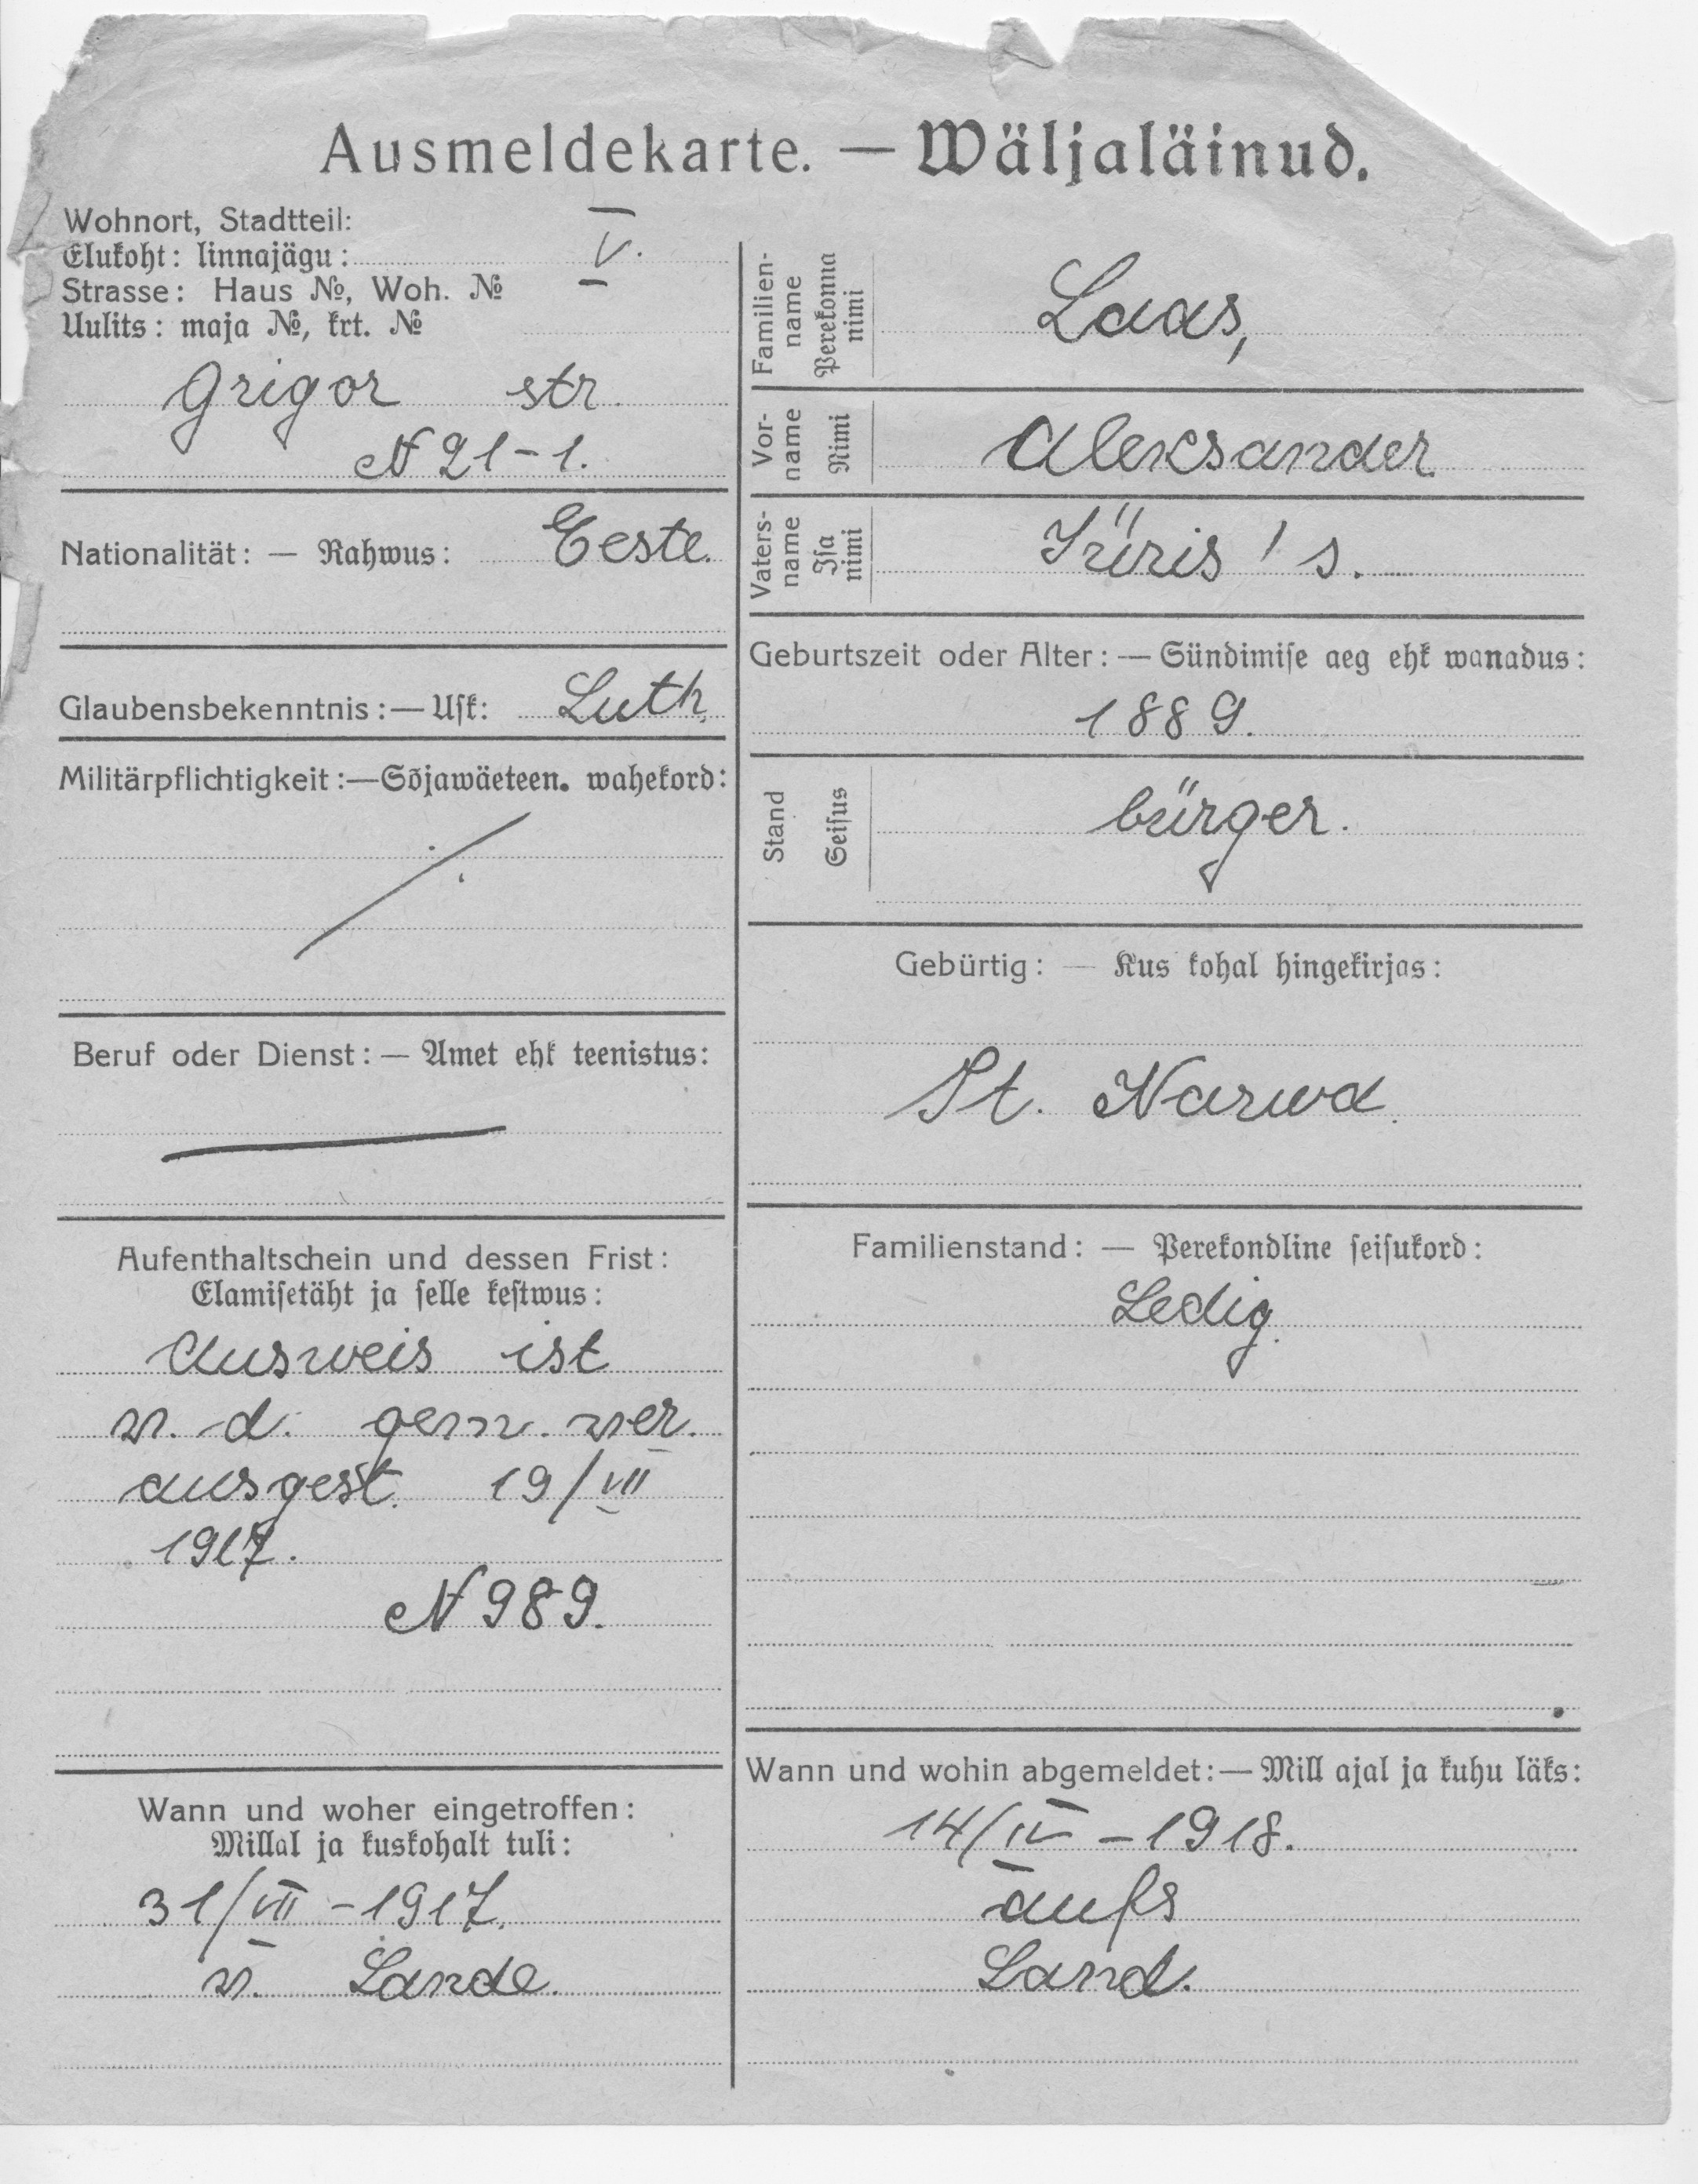 Ausmeldekarte. — Wäljaläinud.
Wohnort, Stadtteil:
Elukoht: linnajägu: V.
Strasse: Haus №, Woh. №
Uulits: maja №, krt. №
Grigor str.
N 21-1.
Nationalität: — Rahwus: Eeste.
Glaubensbekenntnis:— Usk: Luth.
Militärpflichtigkeit:—Sõjawäeteen. wahekord:
Beruf oder Dienst: — Amet ehk teenistus:
Aufenthaltschein und dessen Frist:
Elamisetäht ja selle kestwus:
Ausweis ist
v. d. gem. ver.
ausgest. 19/VII
1917.
N 989.
Wann und woher eingetroffen:
Millal ja kuskohalt tuli:
31/VII - 1917.
v. Lande.
Familien-
name
Perekonna
nimi
Laas,
Vor-
name
Nimi
Aleksander
Vaters-
name
Isa
nimi
Jüris's.
Geburtszeit oder Alter: — Sündimise aeg ehk wanadus:
1889.
Stand
Seisus
bürger.
Gebürtig: — Kus kohal hingekirjas:
St. Narwa.
Familienstand: — Perekondline seisukord:
Ledig.
Wann und wohin abgemeldet:— Mill ajal ja kuhu läks:
14/IV - 1918.
aufs
Land.